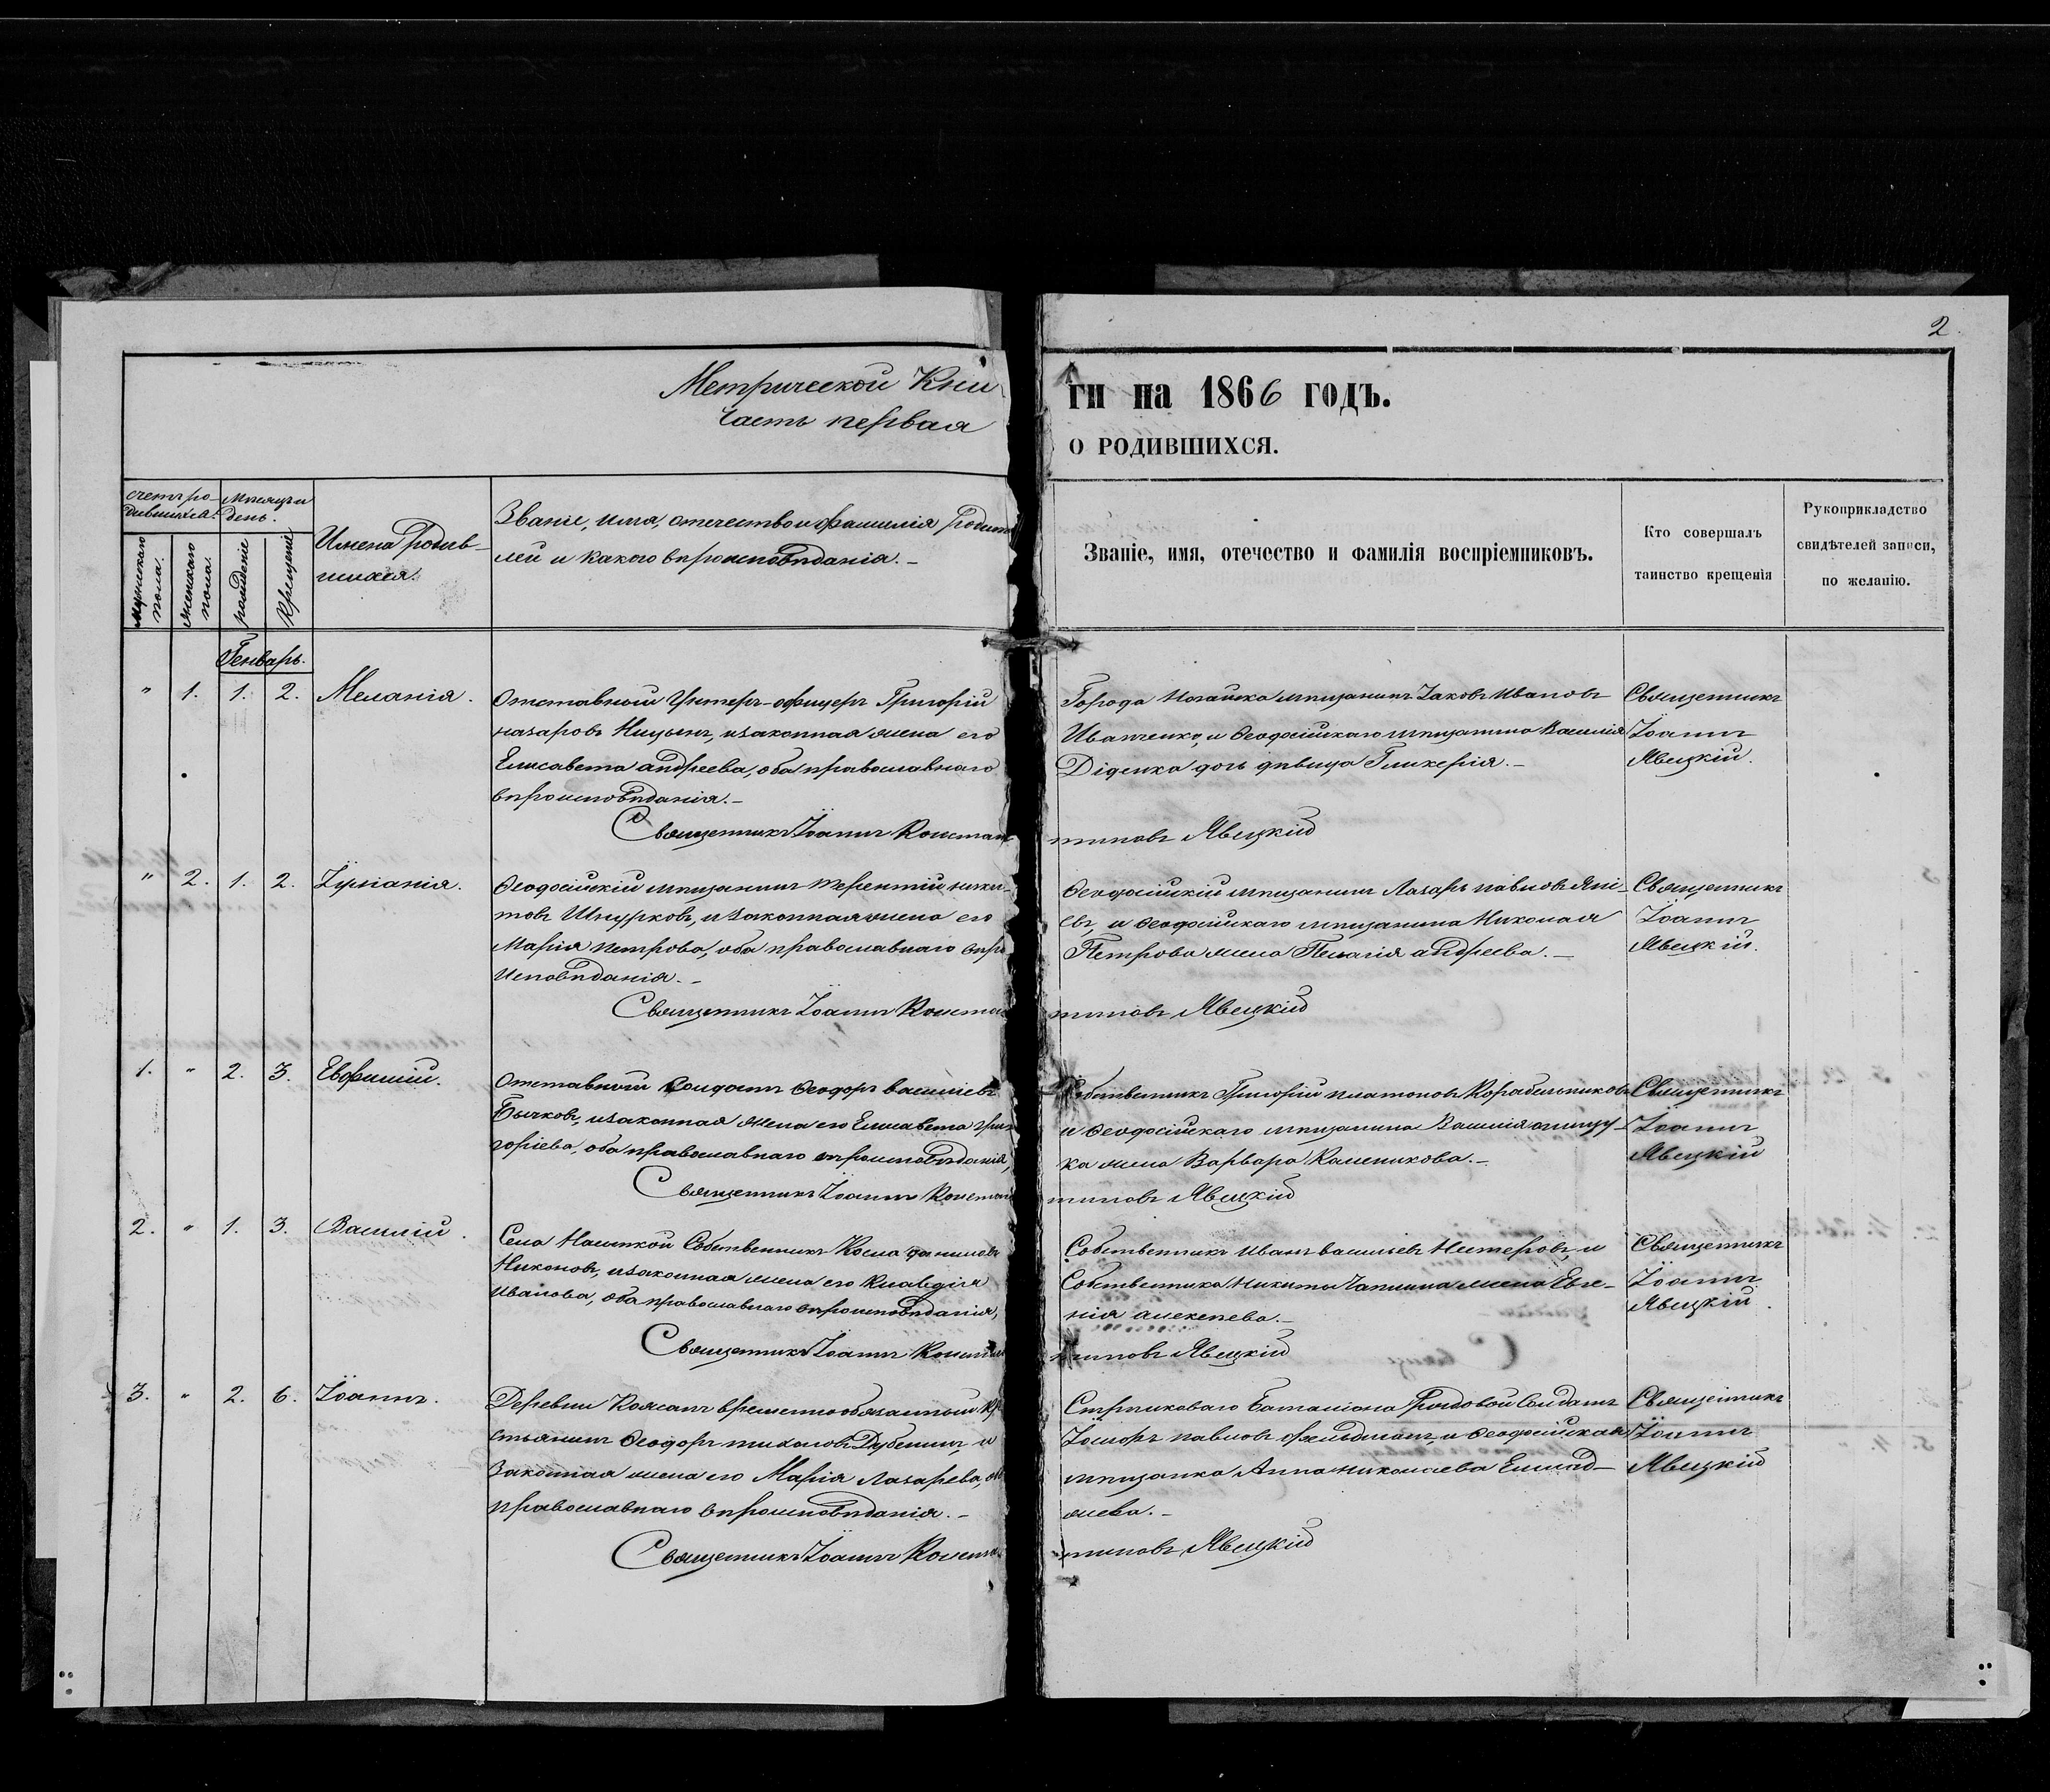 2
Метрической Кни
Часть первая
ги на 1866 годъ.
о родившихся.
счетъ ро-
дившихся.
Мѣсяцъ и
день.
мужескаго
пола.
женскаго
пола.
рожденіе
Крещеніе
Имена родив-
шихся.
Званіе, имя, отечество и фамилія Родите
лей и какого вѣроисповѣданія.-
Званіе, имя, отечество и фамилія воспріемниковъ.
Кто совершалъ
таинство крещенія
Рукоприкладство
свидѣтелей записи,
по желанію.
Генварь.
" 1. 1. 2. Меланія.
Отставной Унтеръ-офицеръ Григорій
назаровъ, изаконная жена его
Елисавета андреева, оба православнаго
вѣроисповѣданія.-
Священникъ Іоаннъ Констан
Города Ногайска мѣщанинъ Іаковъ Ивановъ
Иванченко, и Ѳеодосійскаго мѣщанина Василія
Діденка дочь дѣвица Гликерія.-
тиновъ Явецкій
Священникъ
Іоаннъ
Явецкій.
" 2. 1. 2. Іуліанія.
Ѳеодосійскій мѣщанинъ терентій ники-
товъ Шнурковъ, изаконная жена его
Марія петрова, оба православнаго вѣро
исповѣданія.-
Священникъ Іоаннъ Констан
Ѳеодосійскій мѣщанинъ Лазарь павловъ
евъ, и Ѳеодосійскаго мѣщанина Николая
Петрова жена Пелагія андреева.-
тиновъ Явецкій
Священникъ
Іоаннъ
Явецкій.
1. " 2. 3. Евфимій.
Отставной Солдатъ Ѳеодоръ васильевъ
Бычковъ, изаконная жена его Елисавета гри
горіева, оба православнаго вѣроисповѣданія,
Священникъ Іоаннъ Констан
Собственникъ Григорій платоновъ Корабельниковъ
и Ѳеодосійскаго мѣщанина Василія
ка жена Варвара Каленикова.-
тиновъ Явецкій
Священникъ
Іоаннъ
Явецкій
2. " 1. 3. Василій.
Села Насыпкой Собственникъ Косма даниловъ
Никоновъ, изаконная жена его Клавдія
Иванова, оба православнаго вѣроисповѣданія,
Священникъ Іоаннъ Констан
Собственникъ Иванъ васильевъ Нестеровъ, и
Собственника Никиты Чаплина жена Евге-
нія алексѣева.-
тиновъ Явецкій
Священникъ
Іоаннъ
Явецкій.
3. " 2. 6. Іоаннъ.
Деревни Кожанъ временнообязанный кре
стьянинъ Ѳеодоръ тихоновъ Дубенинъ и
Законная жена его Марія Лазарева, оба
православнаго вѣроисповѣданія.-
Священникъ Іоаннъ Констан
Стрѣлковаго Баталіона Рядовой Солдатъ
павловъ фельдманъ, и Ѳеодосійская
мѣщанка Анна николаева
жева.-
тиновъ Явецкій
Священникъ
Іоаннъ
Явецкій